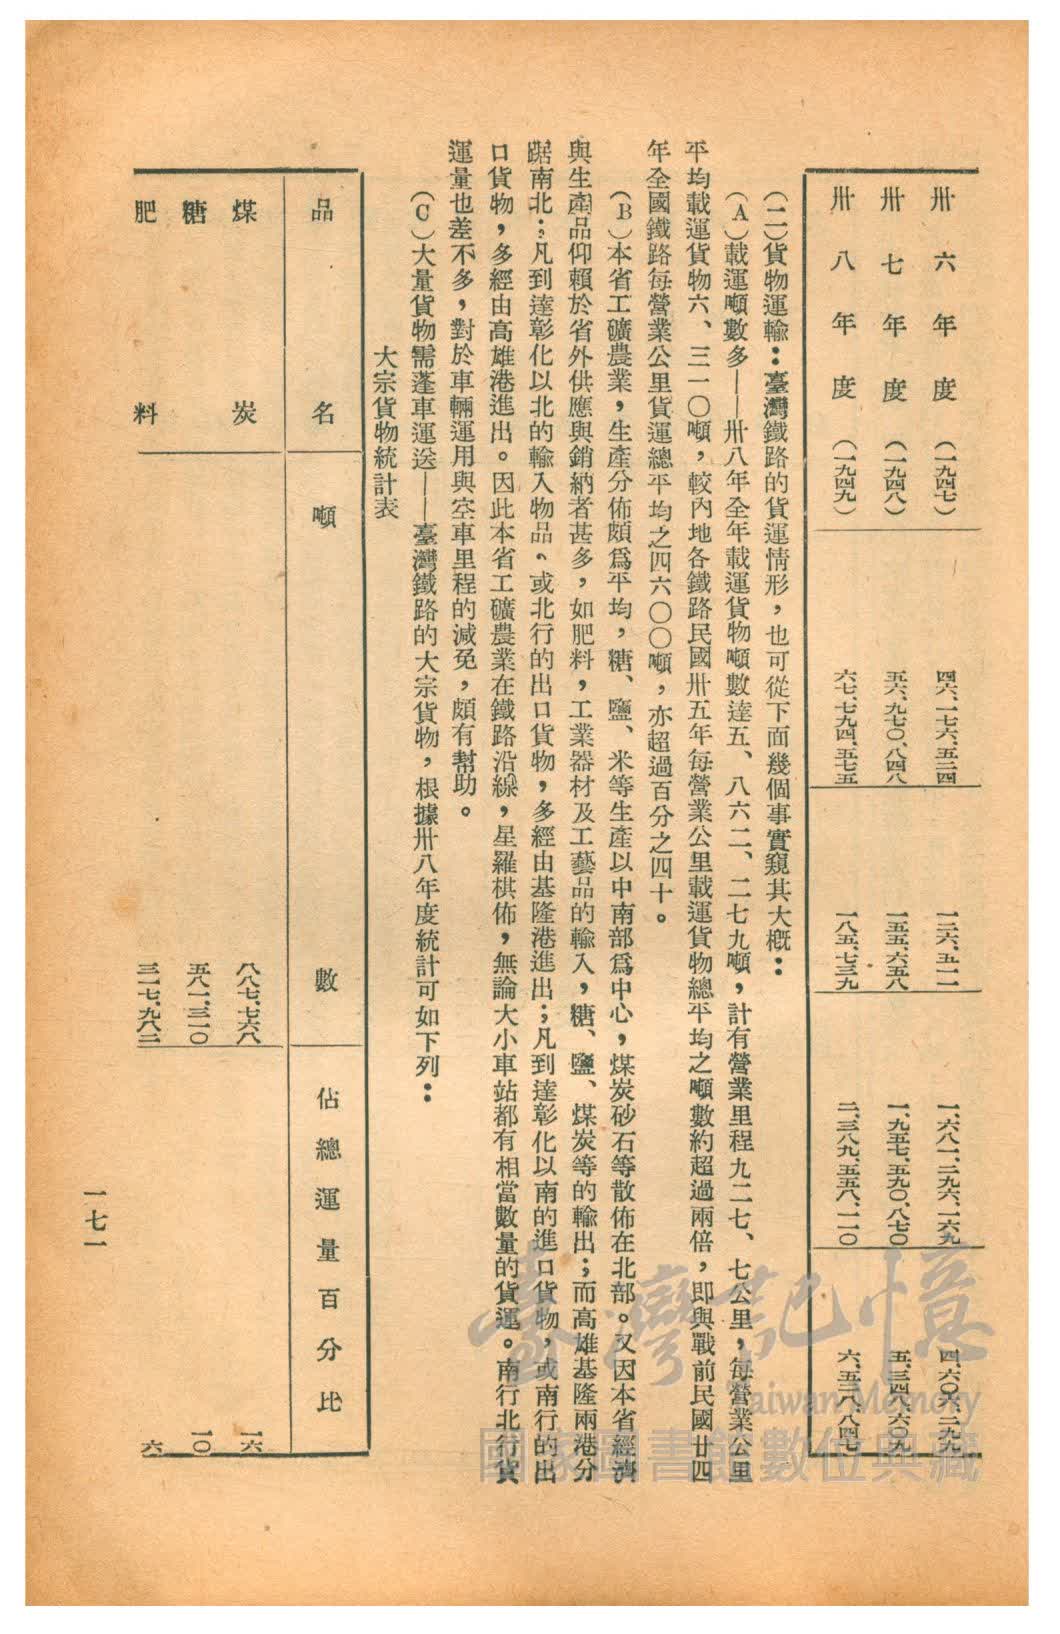 卅六年度(一九四七) 四六、一七六、五三四 一二六、五一一 一、六八一、二九六、一六九 四、六〇六、二九九
卅七年度(一九四八) 五六、九七〇、八四八 一五五、六五八 一、九五七、五九〇、八七〇 五、三四一、六〇九
卅八年度(一九四九) 六七、七九四、五七五 一八五、七三九 二、三八九、五五八、一一〇 六、五二八、八四七
(二)貨物運輸:臺灣鐵路的貨運情形,也可從下面幾個事實窺其大概:
(A)載運噸數多——卅八年全年載運貨物噸數達五、八六二、二七九噸,計有營業里程九二七、七公里,每營業公里
平均載運貨物六、三一〇噸,較內地各鐵路民國卅五年每營業公里載運貨物總平均之噸數約超過兩倍,即與戰前民國廿四
年全國鐵路每營業公里貨運總平均之四六〇〇噸,亦超過百分之四十。
(B)本省工礦農業,生產分佈頗爲平均,糖、鹽、米等生產以中南部爲中心,煤炭砂石等散佈在北部。又因本省經濟
與生產品仰賴於省外供應與銷納者甚多,如肥料,工業器材及工藝品的輸入,糖、鹽、煤炭等的輸出;而高雄基隆兩港分
踞南北;凡到達彰化以北的輸入物品、或北行的出口貨物,多經由基隆港進出;凡到達彰化以南的進口貨物,或南行的出
口貨物,多經由高雄港進出。因此本省工礦農業在鐵路沿線,星羅棋佈,無論大小車站都有相當數量的貨運。南行北行貨
運量也差不多,對於車輛運用與空車里程的減免,頗有幫助。
(C)大量貨物需蓬車運送——臺灣鐵路的大宗貨物,根據卅八年度統計可如下列:
大宗貨物統計表
品名 噸數 佔總運量百分比
煤炭 八八七、七六八 一六
糖 五八一、三一〇 一〇
肥料 三一七、九八二 六
一七一
臺灣記憶
Taiwan Memory
國家圖書館數位典藏